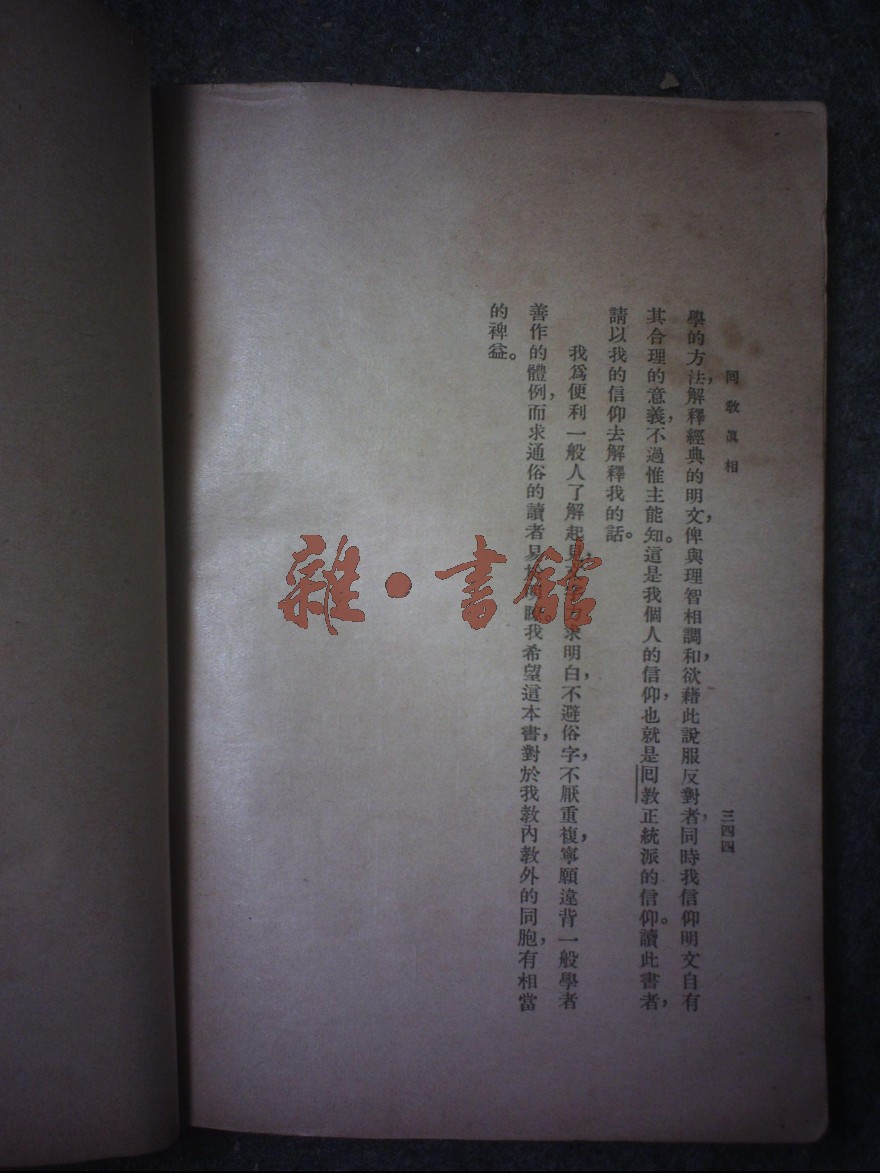 回教眞相
三四四
學的方法，解釋經典的明文，俾與理智相調和，欲藉此說服反對者，同時我信仰明文自有
其合理的意義，不過惟主能知。這是我個人的信仰，也就是回教正統派的信仰。讀此書者，
請以我的信仰去解釋我的話。
我爲便利一般人了解起見，求明白，不避俗字，不厭重複，寧願違背一般學者
善作的體例，而求通俗的讀者易我希望這本書，對於我教內教外的同胞，有相當
的裨益。
雜·書館